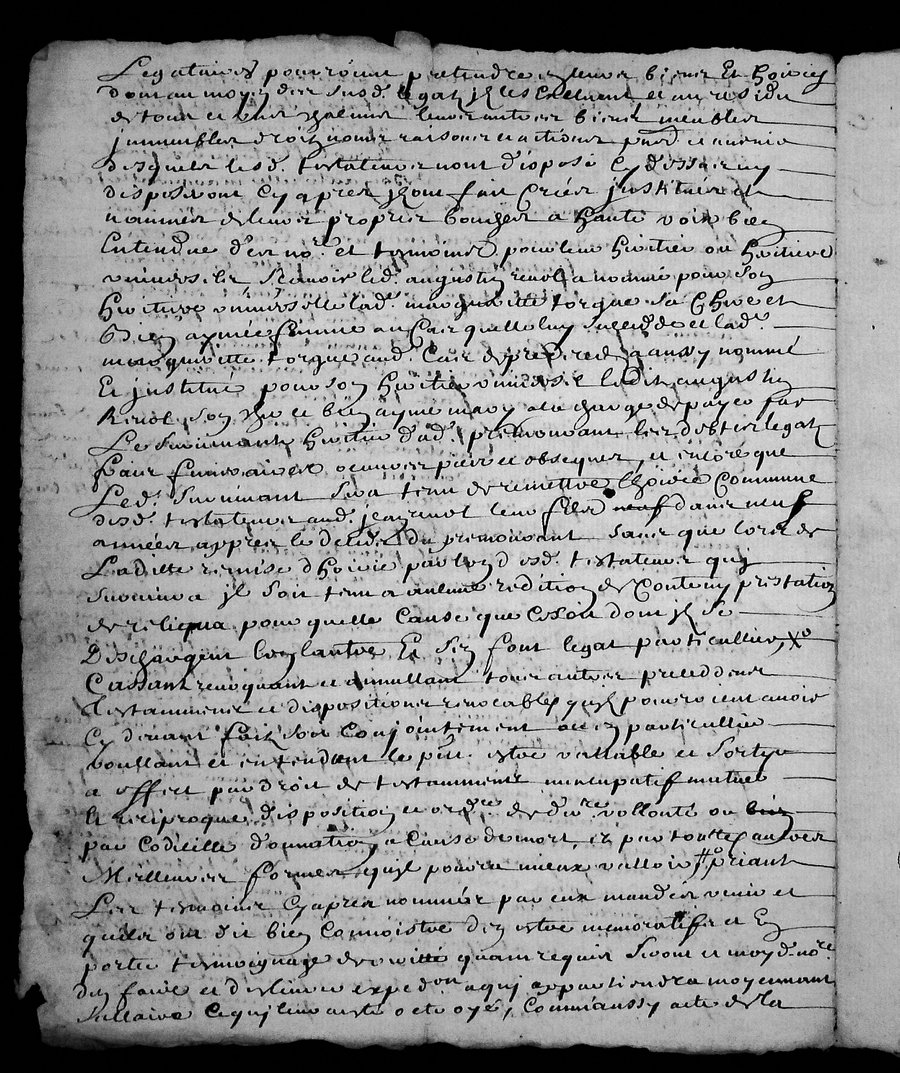 Legataires pouroint pretendre en leurs biens Et hoiries
dont au moyen des susd. legatz ils les Excluent et au residu
de tous et uns chacuns leurs autres biens meubles
jmmeubles droitz noms raisons et actions pnts et avenir
desquels lesd. testateurs n'ont disposé cy dessus ny
disposeront cy apres jls ont fait Creés jnstitués et
nommés de leurs propres bouches a haute voix bien
Entendue d'es nore. et tesmoins pour leur heritier ou heritiere
universelle scavoir led. augustin revol a nommé pour son
heritiere universelle lad. margueritte torgue sa Chere et
bien aymée femme au Cas quelle luy survive et lad.
margueritte torgue aud. Cas de predeces a aussy nommé
Et jnstitué pour son heritier universel ledit augustin
Revol son cher et bien aymé mary a la charge de payer par
Le survivant heritier dud. premourant les debtes legatz
fraix funeraires oeuvres pies et obseques, et encore que
Led. survivant sera tenu de remettre lhoirie Commune
desd. testateurs aud. jean revol leur fils neuf dans neuf
années appres le deceds du premourant sans que lors de
Laditte remise d'hoirie par lun desd. testateurs quy
survivra jl soit tenu a aulcune redition de Conte ny prestation
de reliqua pour quelle Cause que ce soit dont jls se
Deschargent lun lautre Et s'en font legat particullier, xo
Cassant revoquant et annullant tous autres precedens
testamments et dispositions revocables quils pouroient avoir
Cy devant faitz soit Conjointement ou en particullier
voullant et entendant le pnt. estre vallable et sortir
a effect par droit de testamment nuncupatif mutuel
et reciproque disposition et ordre de dere. vollonté ou bien
par Codicille donnation a Cause de mort, et par toutes autres
Meilleures formes quil poura mieux valloir #o priant
Les tesmoins cy apres nommés par eux mandés venir et
quils ont dit bien Connoistre d'en estre memoratifs et En
porter tesmoignage de verité quand requis seront et moyd. nore.
den faire et deslivrer expedon. a qui appartiendra moyennant
sallaire Ce qui leur a esté octroyé, Comm'aussy acte de la